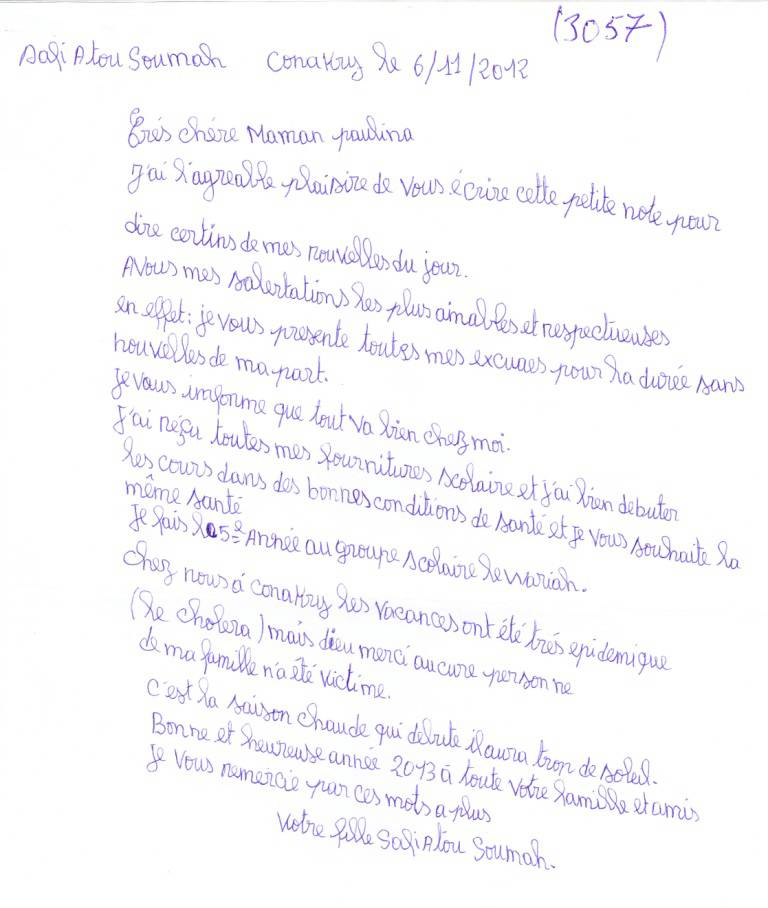 (3057)
SafiAtou Soumah Conakry le 6/11/2012
Trés chére Maman paulina
J'ai l'agreable plaisire de vous écrire cette petite note pour
dire certins de mes nouvelles du jour.
AVous mes salertations les plus aimables et respectueuses
en effet: je vous presente toutes mes excuses pour la durée sans
nouvelles de ma part.
Je vous imforme que tout va bien chez moi.
J'ai réçu toutes mes fournitures scolaire et j'ai bien debuter
les cours dans des bonnes conditions de santé et je vous souhaite la
même santé
Je fais la 5e Année au groupe scolaire lewariah.
Chez nous á conakry les vacances ont été trés epidemique
(le cholera) mais dieu merci aucune personne
de ma famille n'a été victime.
C'est la saison chaude qui debute il aura trop de soleil.
Bonne et heureuse année 2013 á toute votre famille et amis
Je vous remercie par ces mots a plus
Votre fille SafiAtou Soumah.